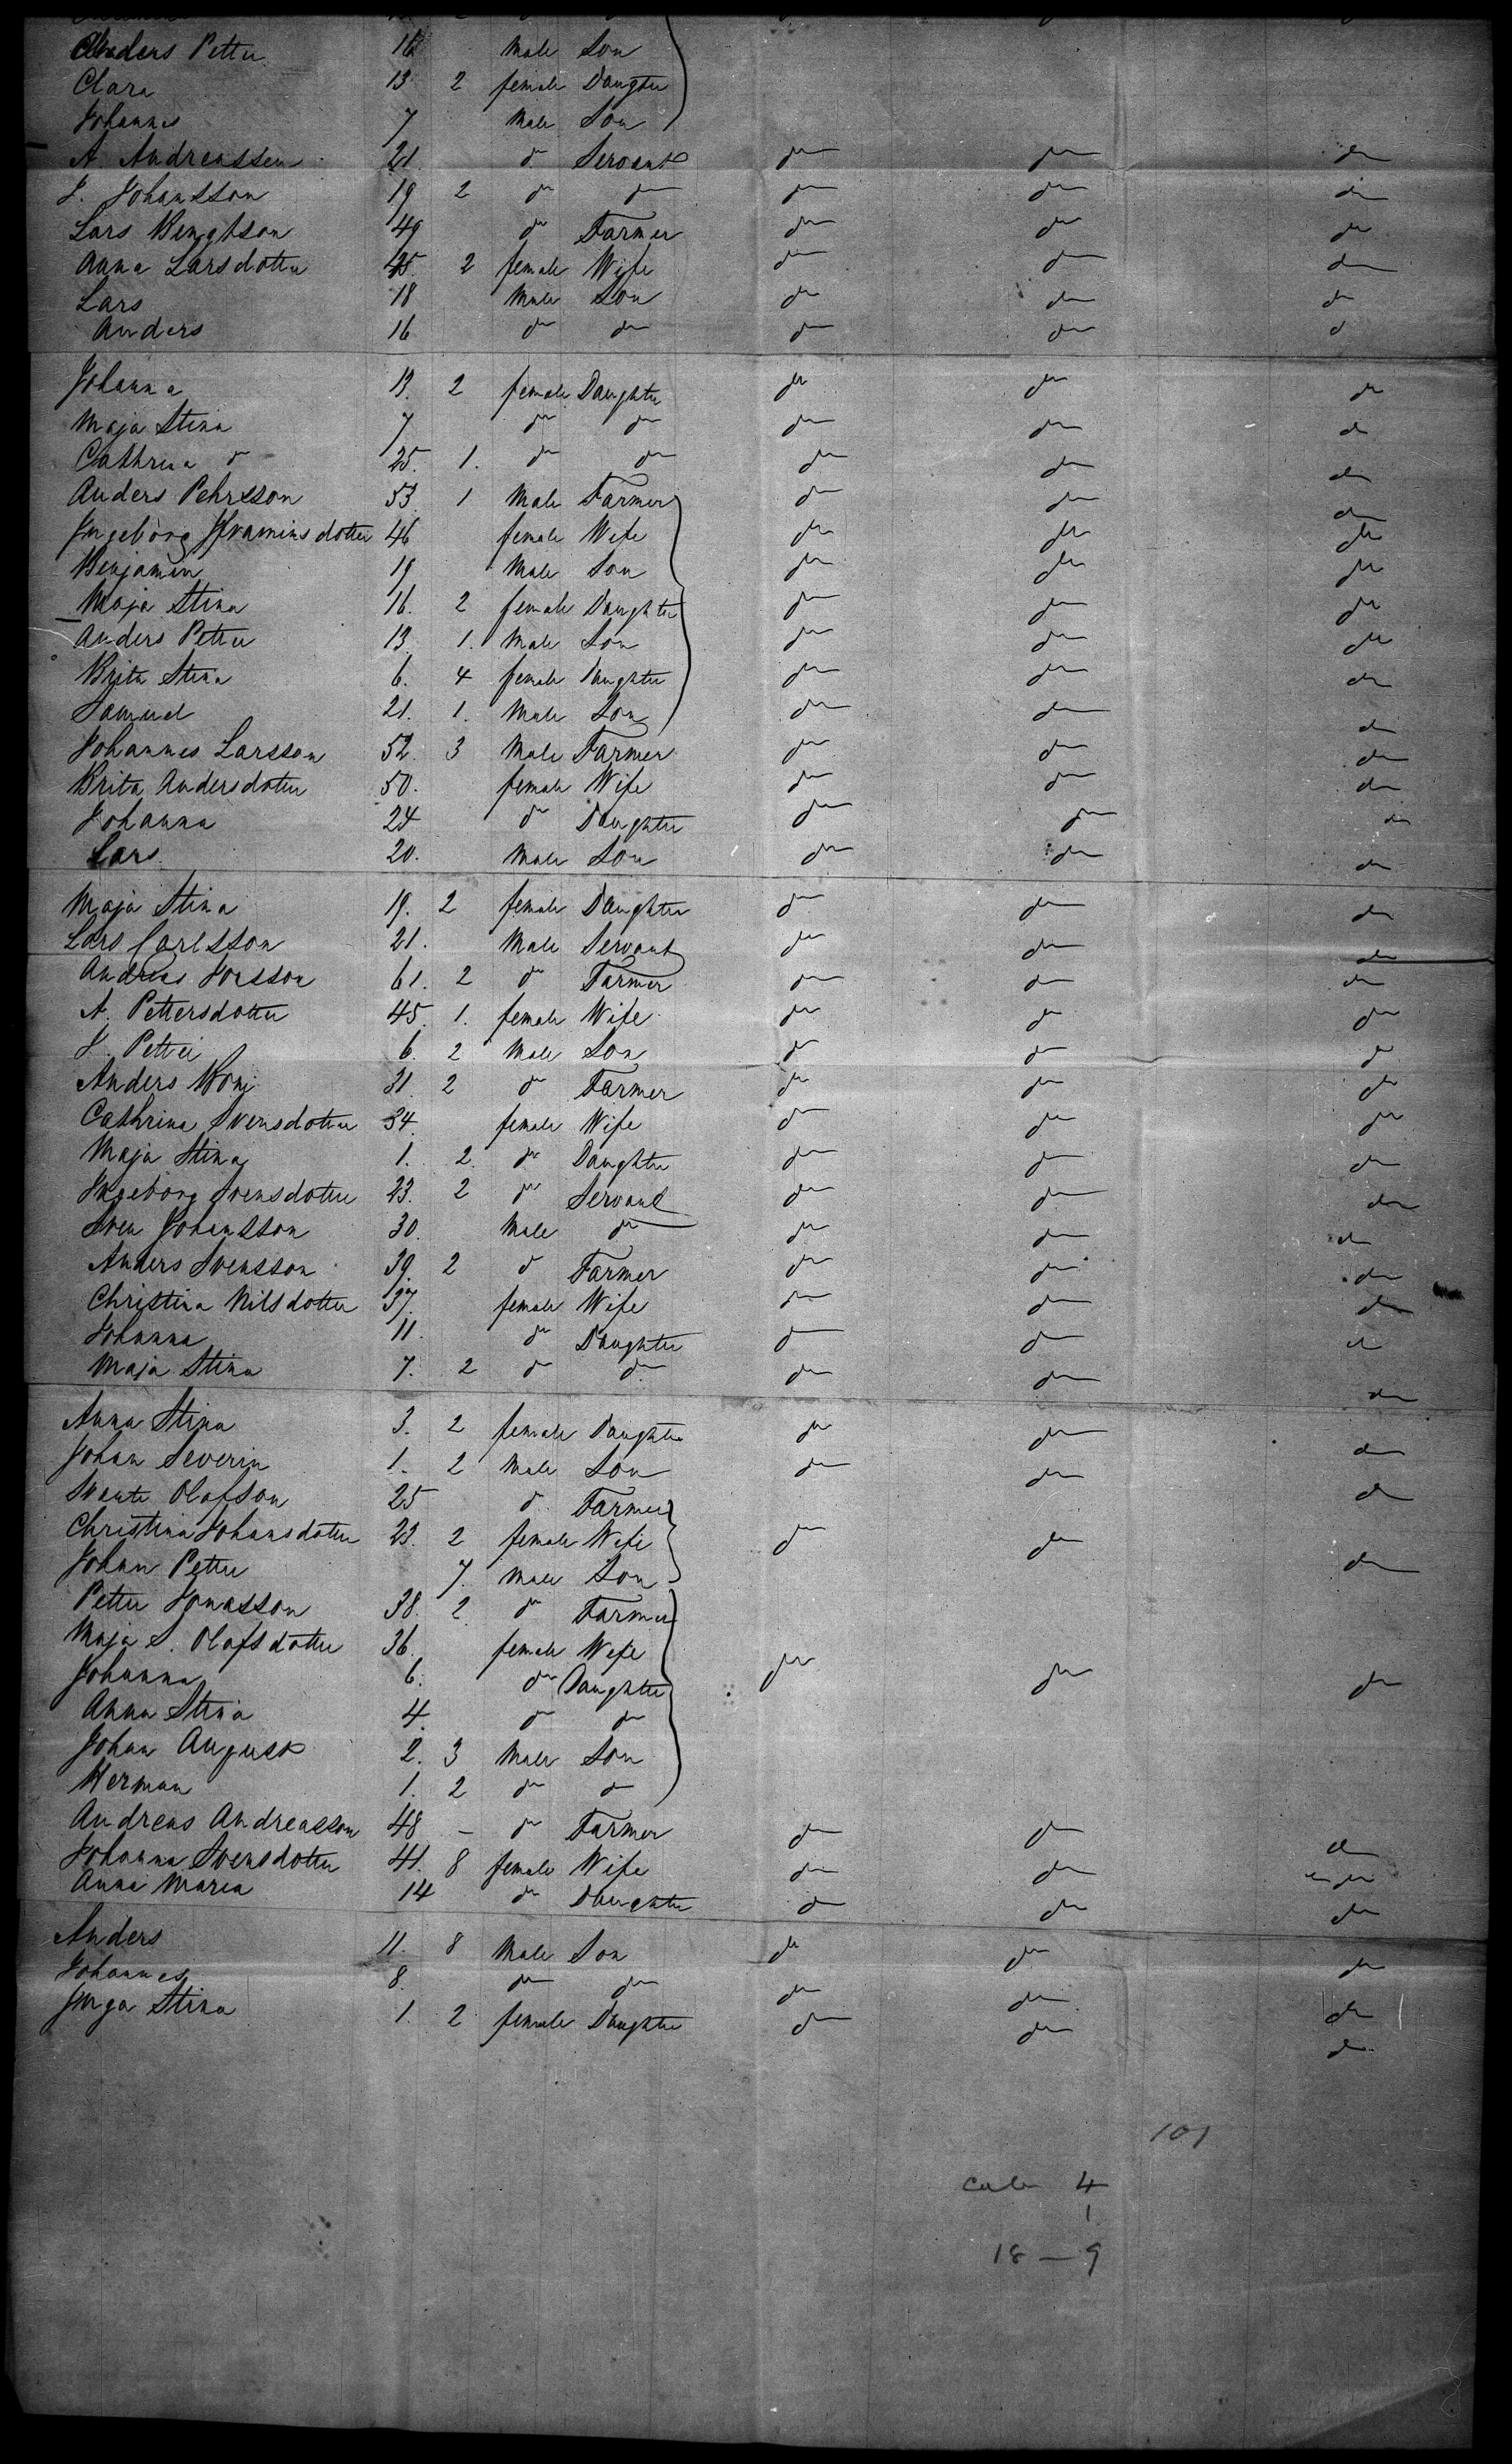 Anders Petter 16 Male Son
Clara 13 2 female Daugter
Johannes 7 Male Son
A. Andreassen 21 do Servant do do do
J. Johansson 19 2 do do do do do
Lars Bengtson 49 do Farmer do do do
Anna Larsdotter 45 2 female Wife do do do
Lars 18 Male Son do do do
Anders 16 do do do do do
Johanna 13. 2 female Daughter do do do
Maja Stina 7 do do do do do
Cathrina do 25. 1. do do do do do
Anders Pehrsson 53 1 Male Farmer do do do
Ingeborg dotter 46 female Wife do do do
Benjamin 19 Male Son do do do
Maja Stina 16. 2 female Daughter do do do
Anders Petter 13. 1. Male Son do do do
Brita Stina 6. 4 female Daughter do do do
Samuel 21. 1. Male Son do do do
Johannes Larsson 52. 3 Male Farmer do do do
Brita Andersdotter 50. female Wife do do do
Johanna 24 do Daughter do do do
Lars 20. Male Son do do do
Maja Stina 19. 2 female Daughter do do do
Lars Carlsson 21. Male Servant do do do
Andreas Jonsson 61. 2 do Farmer do do do
A. Pettersdotter 45. 1. female Wife do do do
J. Petter 6. 2 Male Son do do do
Anders 31 2 do Farmer do do do
Cathrina Svensdotter 34. female Wife do do do
Maja Stina 1. 2. do Daughter do do do
Ingeborg Svensdotter 23. 2 do Servant do do do
Sven Johansson 30. Male do do do do
Anders Svensson 39. 2 do Farmer do do do
Christina Nilsdotter 37. female Wife do do do
Johanna 11. do Daughter do do do
Maja Stina 7. 2 do do do do do
Anna Stina 3. 2 female Daughter do do do
Johan Severin 1. 2 Male Son do do do
Svante Olofson 25 do Farmer
Christina Johansdotter 23. 2 female Wife do do do
Johan Petter 7. Male Son
Petter Jonasson 38. 2. do Farmer
Maja S. Olofsdotter 36. female Wife
Johanna 6. do Daughter do do do
Anna Stina 4. do do
Johan August 2. 3 Male Son
Herman 1. 2 do do
Andreas Andreasson 48 – do Farmer do do do
Johanna Svensdotter 41. 8 female Wife do do do
Anna Maria 14 do Daughter do do do
Anders 11. 8 Male Son do do do
Johannes 8. do do do do do
Inga Stina 1. 2 female Daughter do do do
101
4
1
18 — 9